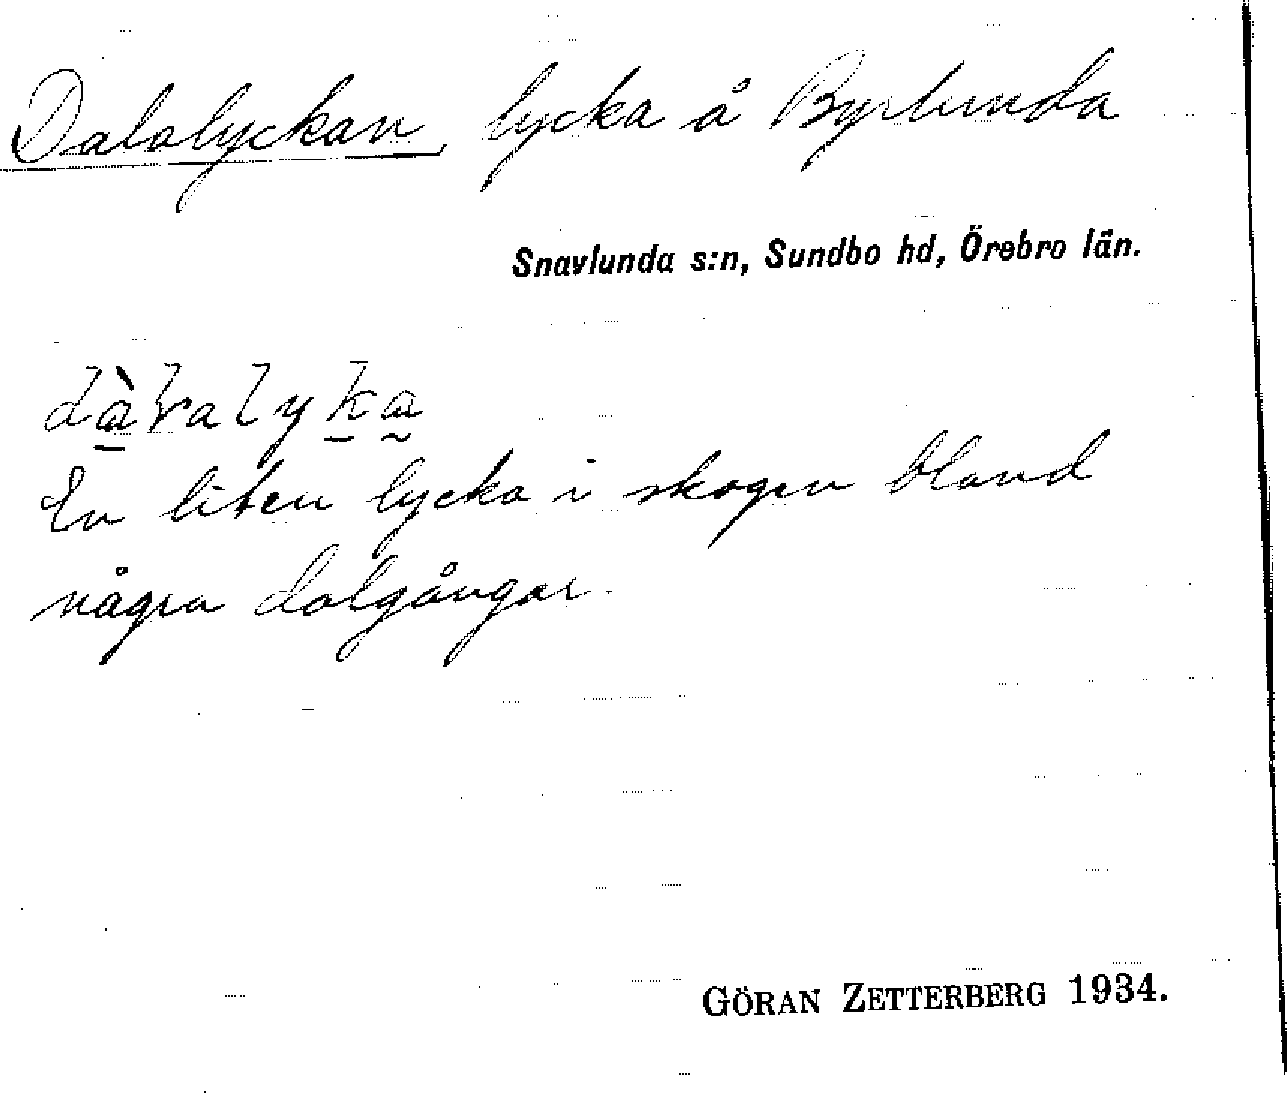 Dalalyckan, lycka å Byrlunda
Snavlunda s:n, Sundbo hd, Örebro län.
En liten lycka i skogen bland
några dalgångar.
GÖRAN ZETTERBERG 1934.